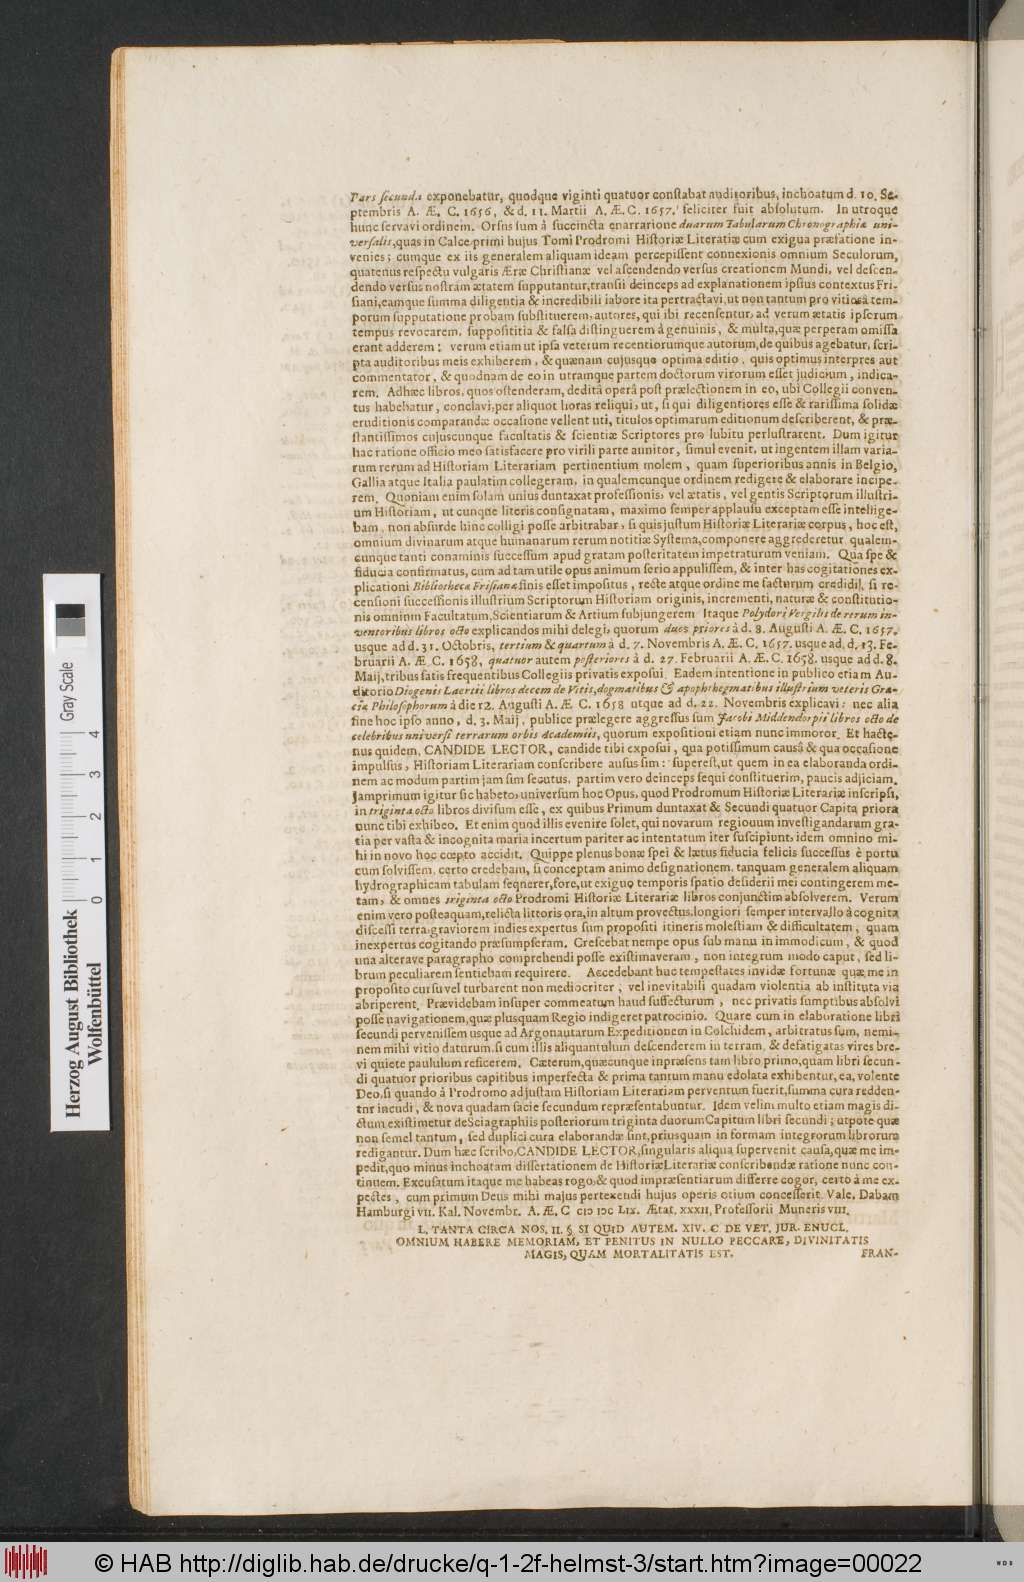 Pars secunda exponebatur, quodque viginti quatuor constabat auditoribus, inchoatum d. 10. Se-
ptembris A. Æ. C. 1656, & d. 11. Martii A. Æ. C. 1657. feliciter fuit absolutum. In utroque
hunc servavi ordinem. Orsus sum â succincta enarratione duarum Tabularum Chronographiæ uni-
versalis, quas in Calce primi hujus Tomi Prodromi Historiæ Literariæ cum exigua præfatione in-
venies; cumque ex iis generalem aliquam ideam percepissent connexionis omnium Seculorum,
quatenus respectu vulgaris Æræ Christianæ vel ascendendo versus creationem Mundi, vel descen-
dendo versus nostram ætatem supputantur, transii deinceps ad explanationem ipsius contextus Fri-
siani, eamque summa diligentia & incredibili labore ita pertractavi, ut non tantum pro vitiosâ tem-
porum supputatione probam substituerem, autores, qui ibi recensentur, ad verum ætatis ipsorum
tempus revocarem, supposititia & falsa distinguerem â genuinis, & multa, quæ perperam omissa
erant adderem; verum etiam ut ipsa veterum recentiorumque autorum, de quibus agebatur, scri-
pta auditoribus meis exhiberem, & quænam cujusque optima editio, quis optimus interpres aut
commentator, & quodnam de eo in utramque partem doctorum virorum esset judicium, indica-
rem. Adhæc libros, quos ostenderam, deditâ operâ post prælectionem in eo, ubi Collegii conven-
tus habebatur, conclavi, per aliquot horas reliqui, ut, si qui diligentiores esse & rarissima solidæ
eruditionis comparandæ occasione vellent uti, titulos optimarum editionum describerent, & præ-
stantissimos cujuscunque facultatis & scientiæ Scriptores pro lubitu perlustrarent. Dum igitur
hac ratione officio meo satisfacere pro virili parte annitor, simul evenit, ut ingentem illam varia-
rum rerum ad Historiam Literariam pertinentium molem, quam superioribus annis in Belgio,
Gallia atque Italia paulatim collegeram, in qualemcunque ordinem redigere & elaborare incipe-
rem. Quoniam enim solam unius duntaxat professionis, vel ætatis, vel gentis Scriptorum illustri-
um Historiam, ut cunque literis consignatam, maximo semper applausu exceptam esse intellige-
bam, non absurde hinc colligi posse arbitrabar, si quis justum Historiæ Literariæ corpus, hoc est,
omnium divinarum atque humanarum rerum notitiæ Systema, componere aggrederetur qualem-
cunque tanti conaminis successum apud gratam posteritatem impetraturum veniam. Qua spe &
fiducia confirmatus, cum ad tam utile opus animum serio appulissem, & inter has cogitationes ex-
plicationi Bibliothecæ Frisianæ finis esset impositus, recte atque ordine me facturum credidi, si re-
censioni successionis illustrium Scriptorum Historiam originis, incrementi, naturæ & constitutio-
nis omnium Facultatum, Scientiarum & Artium subjungerem Itaque Polydori Vergilii de rerum in-
ventoribus libros octo explicandos mihi delegi, quorum duos priores à d. 8. Augusti A. Æ. C. 1657.
usque ad d. 31. Octobris, tertium & quartum à d. 7. Novembris A. Æ. C. 1657. usque ad. d. 13. Fe-
bruarii A. Æ C. 1658, quatuor autem posteriores à d. 27 Februarii A. Æ. C. 1658. usque ad d. 8.
Maij, tribus satis frequentibus Collegiis privatis exposui. Eadem intentione in publico etiam Au-
ditorio Diogenis Laertii libros decem de Vitis, dogmatibus & apophthegmatibus illustrium veteris Græ-
ciæ Philosophorum à die 12. Augusti A. Æ C. 1658 usque ad d. 22. Novembris explicavi: nec alia
fine hoc ipso anno, d. 3. Maij, publice prælegere aggressus sum Jacobi Middendorpii libros octo de
celebribus universi terrarum orbis Academiis, quorum expositioni etiam nunc immoror. Et hacte-
nus quidem, CANDIDE LECTOR, candide tibi exposui, qua potissimum causâ & qua occasione
impulsus, Historiam Literariam conscribere ausus sim: superest, ut quem in ea elaboranda ordi-
nem ac modum partim jam sim secutus, partim vero deinceps sequi constituerim, paucis adjiciam.
Jamprimum igitur sic habeto, universum hoc Opus, quod Prodromum Historiæ Literariæ inscripsi,
in triginta octo libros divisum esse, ex quibus Primum duntaxat & Secundi quatuor Capita priora
nunc tibi exhibeo. Et enim quod illis evenire solet, qui novarum regionum investigandarum gra-
tia per vasta & incognita maria incertum pariter ac intentatum iter suscipiunt, idem omnino mi-
hi in novo hoc cœpto accidit. Quippe plenus bonæ spei & lætus fiducia felicis successus è portu
cum solvissem, certo credebam, si conceptam animo designationem, tanquam generalem aliquam
hydrographicam tabulam seqnerer, fore, ut exiguo temporis spatio desiderii mei contingerem me-
tam, & omnes triginta octo Prodromi Historiæ Literariæ libros conjunctim absolverem. Verum
enim vero posteaquam, relicta littoris ora, in altum provectus, longiori semper intervallo à cognita
discessi terra, graviorem indies expertus sum propositi itineris molestiam & difficultatem, quam
inexpertus cogitando præsumpseram. Crescebat nempe opus sub manu in immodicum, & quod
una alterave paragrapho comprehendi posse existimaveram, non integrum modo caput, sed li-
brum peculiarem sentiebam requirere. Accedebant huc tempestates invidæ fortunæ quæ me in
proposito cursu vel turbarent non mediocriter, vel inevitabili quadam violentia ab instituta via
abriperent. Prævidebam insuper commeatum haud suffecturum, nec privatis sumptibus absolvi
posse navigationem, quæ plusquam Regio indigeret patrocinio. Quare cum in elaboratione libri
secundi pervenissem usque ad Argonautarum Expeditionem in Colchidem, arbitratus sum, nemi-
nem mihi vitio daturum, si cum illis aliquantulum descenderem in terram, & defatigatas vires bre-
vi quiete paululum reficerem. Cæterum, quæcunque inpræsens tam libro primo, quam libri secun-
di quatuor prioribus capitibus imperfecta & prima tantum manu edolata exhibentur, ea, volente
Deo, si quando à Prodromo ad justam Historiam Literariam perventum fuerit, summa cura redden-
tnr incudi, & nova quadam facie secundum repræsentabuntur. Idem velim multo etiam magis di-
ctum existimetur de Sciagraphiis posteriorum triginta duorum Capitum libri secundi; utpote quæ
non semel tantum, sed duplici cura elaborandæ sint, priusquam in formam integrorum librorum
redigantur. Dum hæc scribo, CANDIDE LECTOR, singularis aliqua supervenit causa, quæ me im-
pedit, quo minus inchoatam dissertationem de Historiæ Literariæ conscribendæ ratione nunc con-
tinuem. Excusatum itaque me habeas rogo, & quod impræsentiarum differre cogor, certo à me ex-
pectes, cum primum Deus mihi majus pertexendi hujus operis otium concesserit. Vale. Dabam
Hamburgi VII. Kal. Novembr. A. Æ. C CIƆ IƆC LIX. Ætat. XXXII, Professorii Muneris VIII.
L. TANTA CIRCA NOS. II. §. SI QUID AUTEM. XIV. C. DE VET. JUR. ENUCL.
OMNIUM HABERE MEMORIAM, ET PENITUS IN NULLO PECCARE, DIVINITATIS
MAGIS, QUAM MORTALITATIS EST.
FRAN-
Herzog August Bibliothek
Wolfenbüttel
Gray Scale
0 1 2 3 4
© HAB http://diglib.hab.de/drucke/q-1-2f-helmst-3/start.htm?image=00022